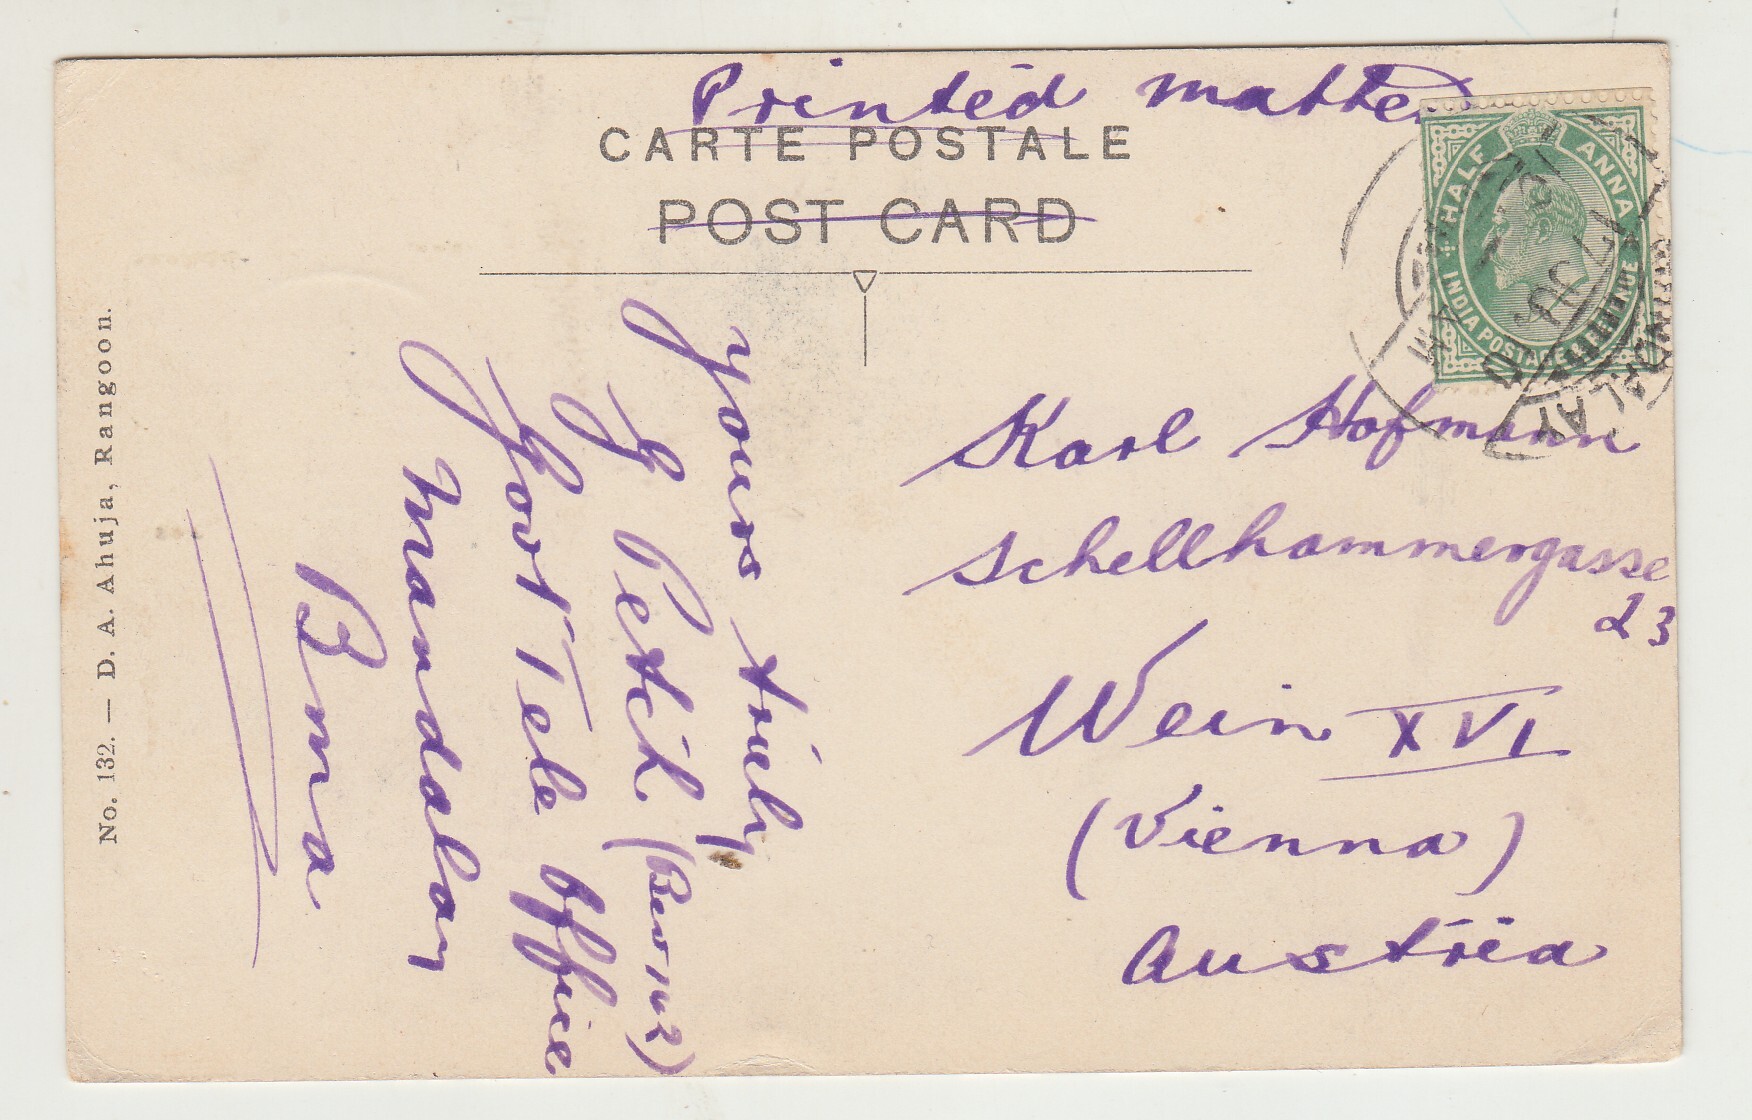 Printed matter
CARTE POSTALE
POST CARD
HALF ANNA
INDIA POSTAGE & REVENUE
MANDALAY
Karl Hofmann
Schellhammergasse
23
Wein XVI
(Vienna)
Austria
yours truly
G Petch
Govt Tele Office
Mandalay
Bma
No. 132. — D. A. Ahuja, Rangoon.